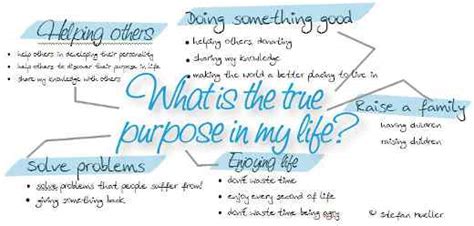 Helping others
• help others in developing their personality
• help others to discover their purpose in life
• share my knowledge with others
Doing something good
• helping others, donating
• sharing my knowledge
• making the world a better placing to live in
What is the true
purpose in my life?
Raise a family
having children
raising children
solve problems
• solve problems that people suffer from!
• giving something back
Enjoying life
• don't waste time
• enjoy every second of life
• don't waste time being
© Stefan Mueller